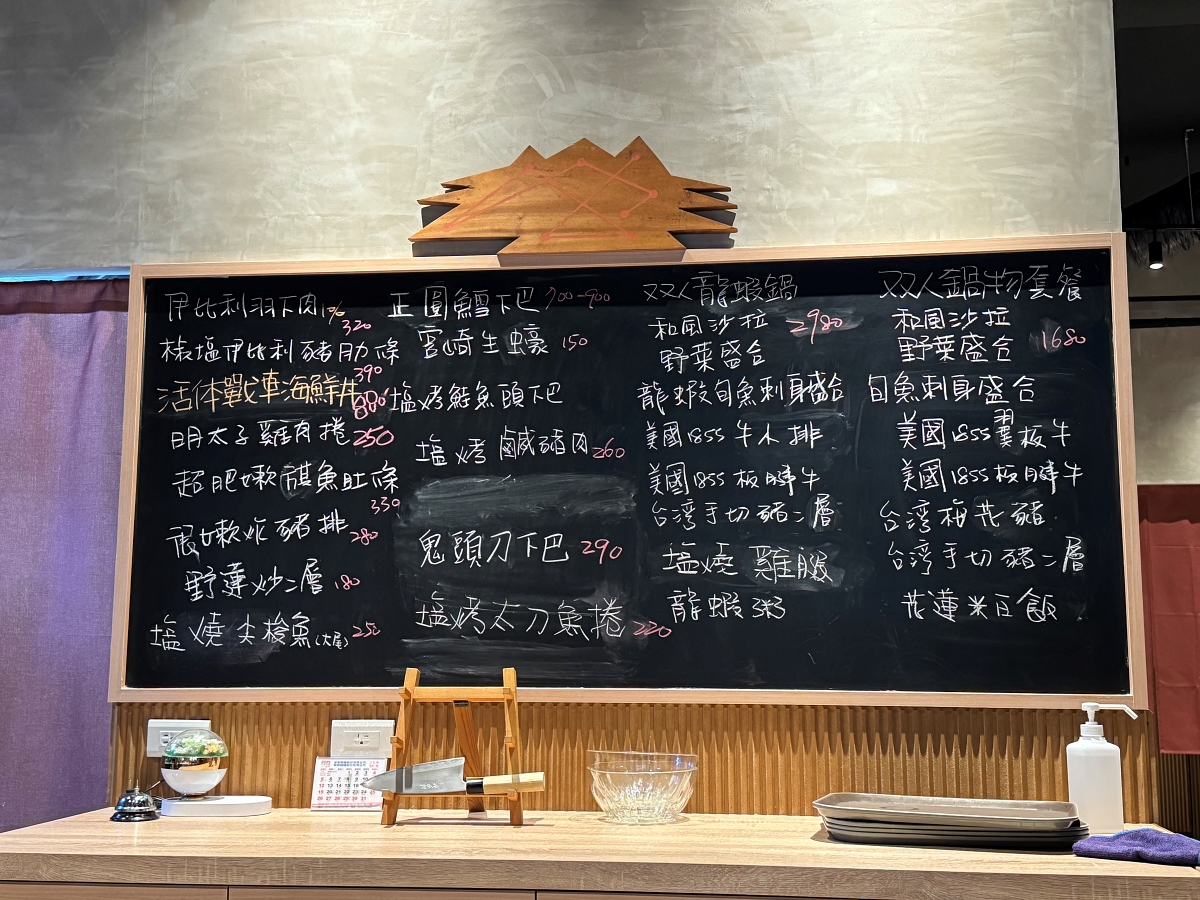 伊比利羽下肉 320
椒塩伊比利豬肋條 390
活体戰車海鮮 880
明太子雞肉捲 250
超肥嫩旗魚肚條 330
嫩炸豬排 280
野蓮炒二層 180
塩燒尖梭魚(大尾) 250
正圓鱈下巴 700-900
雲崎生蠔 150
塩烤鮭魚頭下巴
塩烤鹹豬肉 260
鬼頭刀下巴 290
塩烤太刀魚捲 220
双人龍蝦鍋 2980
和風沙拉
野菜盛合
龍蝦旬魚刺身盛合
美國1855牛小排
美國1855板腱牛
台湾手切豬二層
塩燒雞腿
龍蝦粥
双人鍋物套餐 1680
和風沙拉
野菜盛合
旬魚刺身盛合
美國1855翼板牛
美國1855板腱牛
台湾梅花豬
台湾手切豬二層
花蓮米豆飯